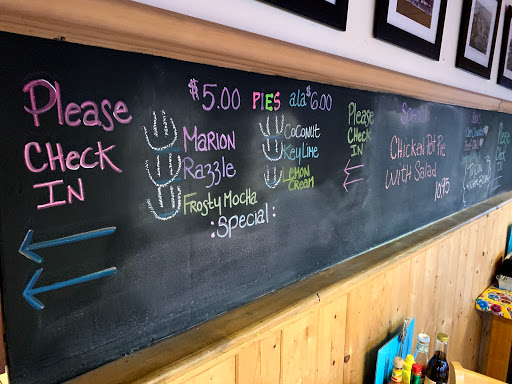 Please
CHECK
IN
$5.00 PIES ala $6.00
MARION
Razzle
Frosty Mocha
:Special:
Coconut
Key Lime
Lemon
Cream
Please
CHECK
IN
Special
Chicken Pot Pie
with Salad
10.95
Please